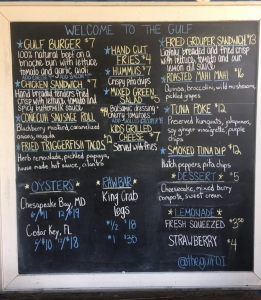 WELCOME TO THE GULF
GULF BURGER $7
100% natural beef on a
brioche bun with lettuce,
tomato and garlic aioli
CHICKEN SANDWICH
Hand breaded tenders fried
crisp with lettuce, tomato and
spicy buttermilk sauce
CONECUH SAUSAGE ROLL
Blackberry mustard, caramelized
onions, arugula
FRIED TRIGGERFISH TACOS 12
Herb remoulade, pickled papaya,
house made hot sauce, cilantro
OYSTERS
Chesapeake Bay, MD
6/$11 12/$19
Cedar Key, FL
6/$10 12/$18
HAND CUT
FRIES $4
HUMMUS $7
Crispy pea chips
MIXED GREEN
SALAD $5
Balsamic dressing
Penury tomatoes
KIDS GRILLED
CHEESE $7
Served with fries
RAW BAR
King Crab
legs
1/2 $18
1 $36
FRIED GROUPER SANDWICH $13
Lightly breaded and fried crisp
with lettuce, tomato and our
lemon dill sauce
ROASTED MAHI MAHI 16
Quinoa, broccolini, wild mushroom,
pickled grapes
TUNA POKE 12
Preserved kumquats, jalapenos,
soy ginger vinaigrette, purple
chips
SMOKED TUNA DIP $12
Hatch peppers, pita chips
DESSERT $5
Cheesecake, mixed berry
compote, sweet cream
LEMONADE
FRESH SQUEEZED $3.50
STRAWBERRY $4
@thegulfOI